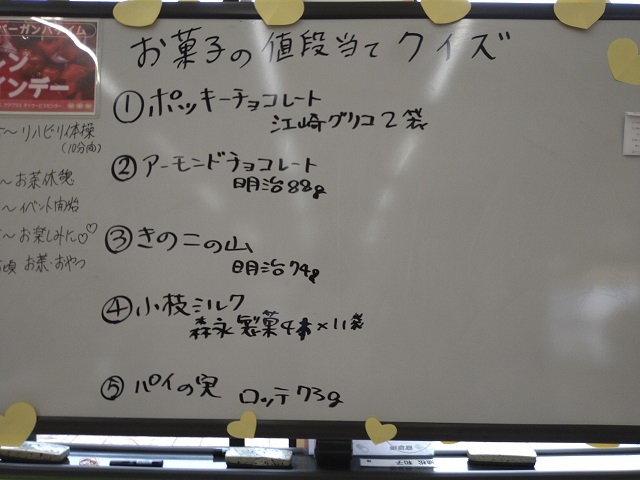 お菓子の値段当てクイズ
① ポッキーチョコレート
江崎グリコ 2袋
② アーモンドチョコレート
明治 88g
③ きのこの山
明治 74g
④ 小枝ミルク
森永製菓 4本×11袋
⑤ パイの実 ロッテ 73g
～リハビリ体操
(10分間)
～お茶休憩
～イベント開始
～お楽しみに♡♡
頃 お茶・おやつ
バーガンバァイム
レン
インデー